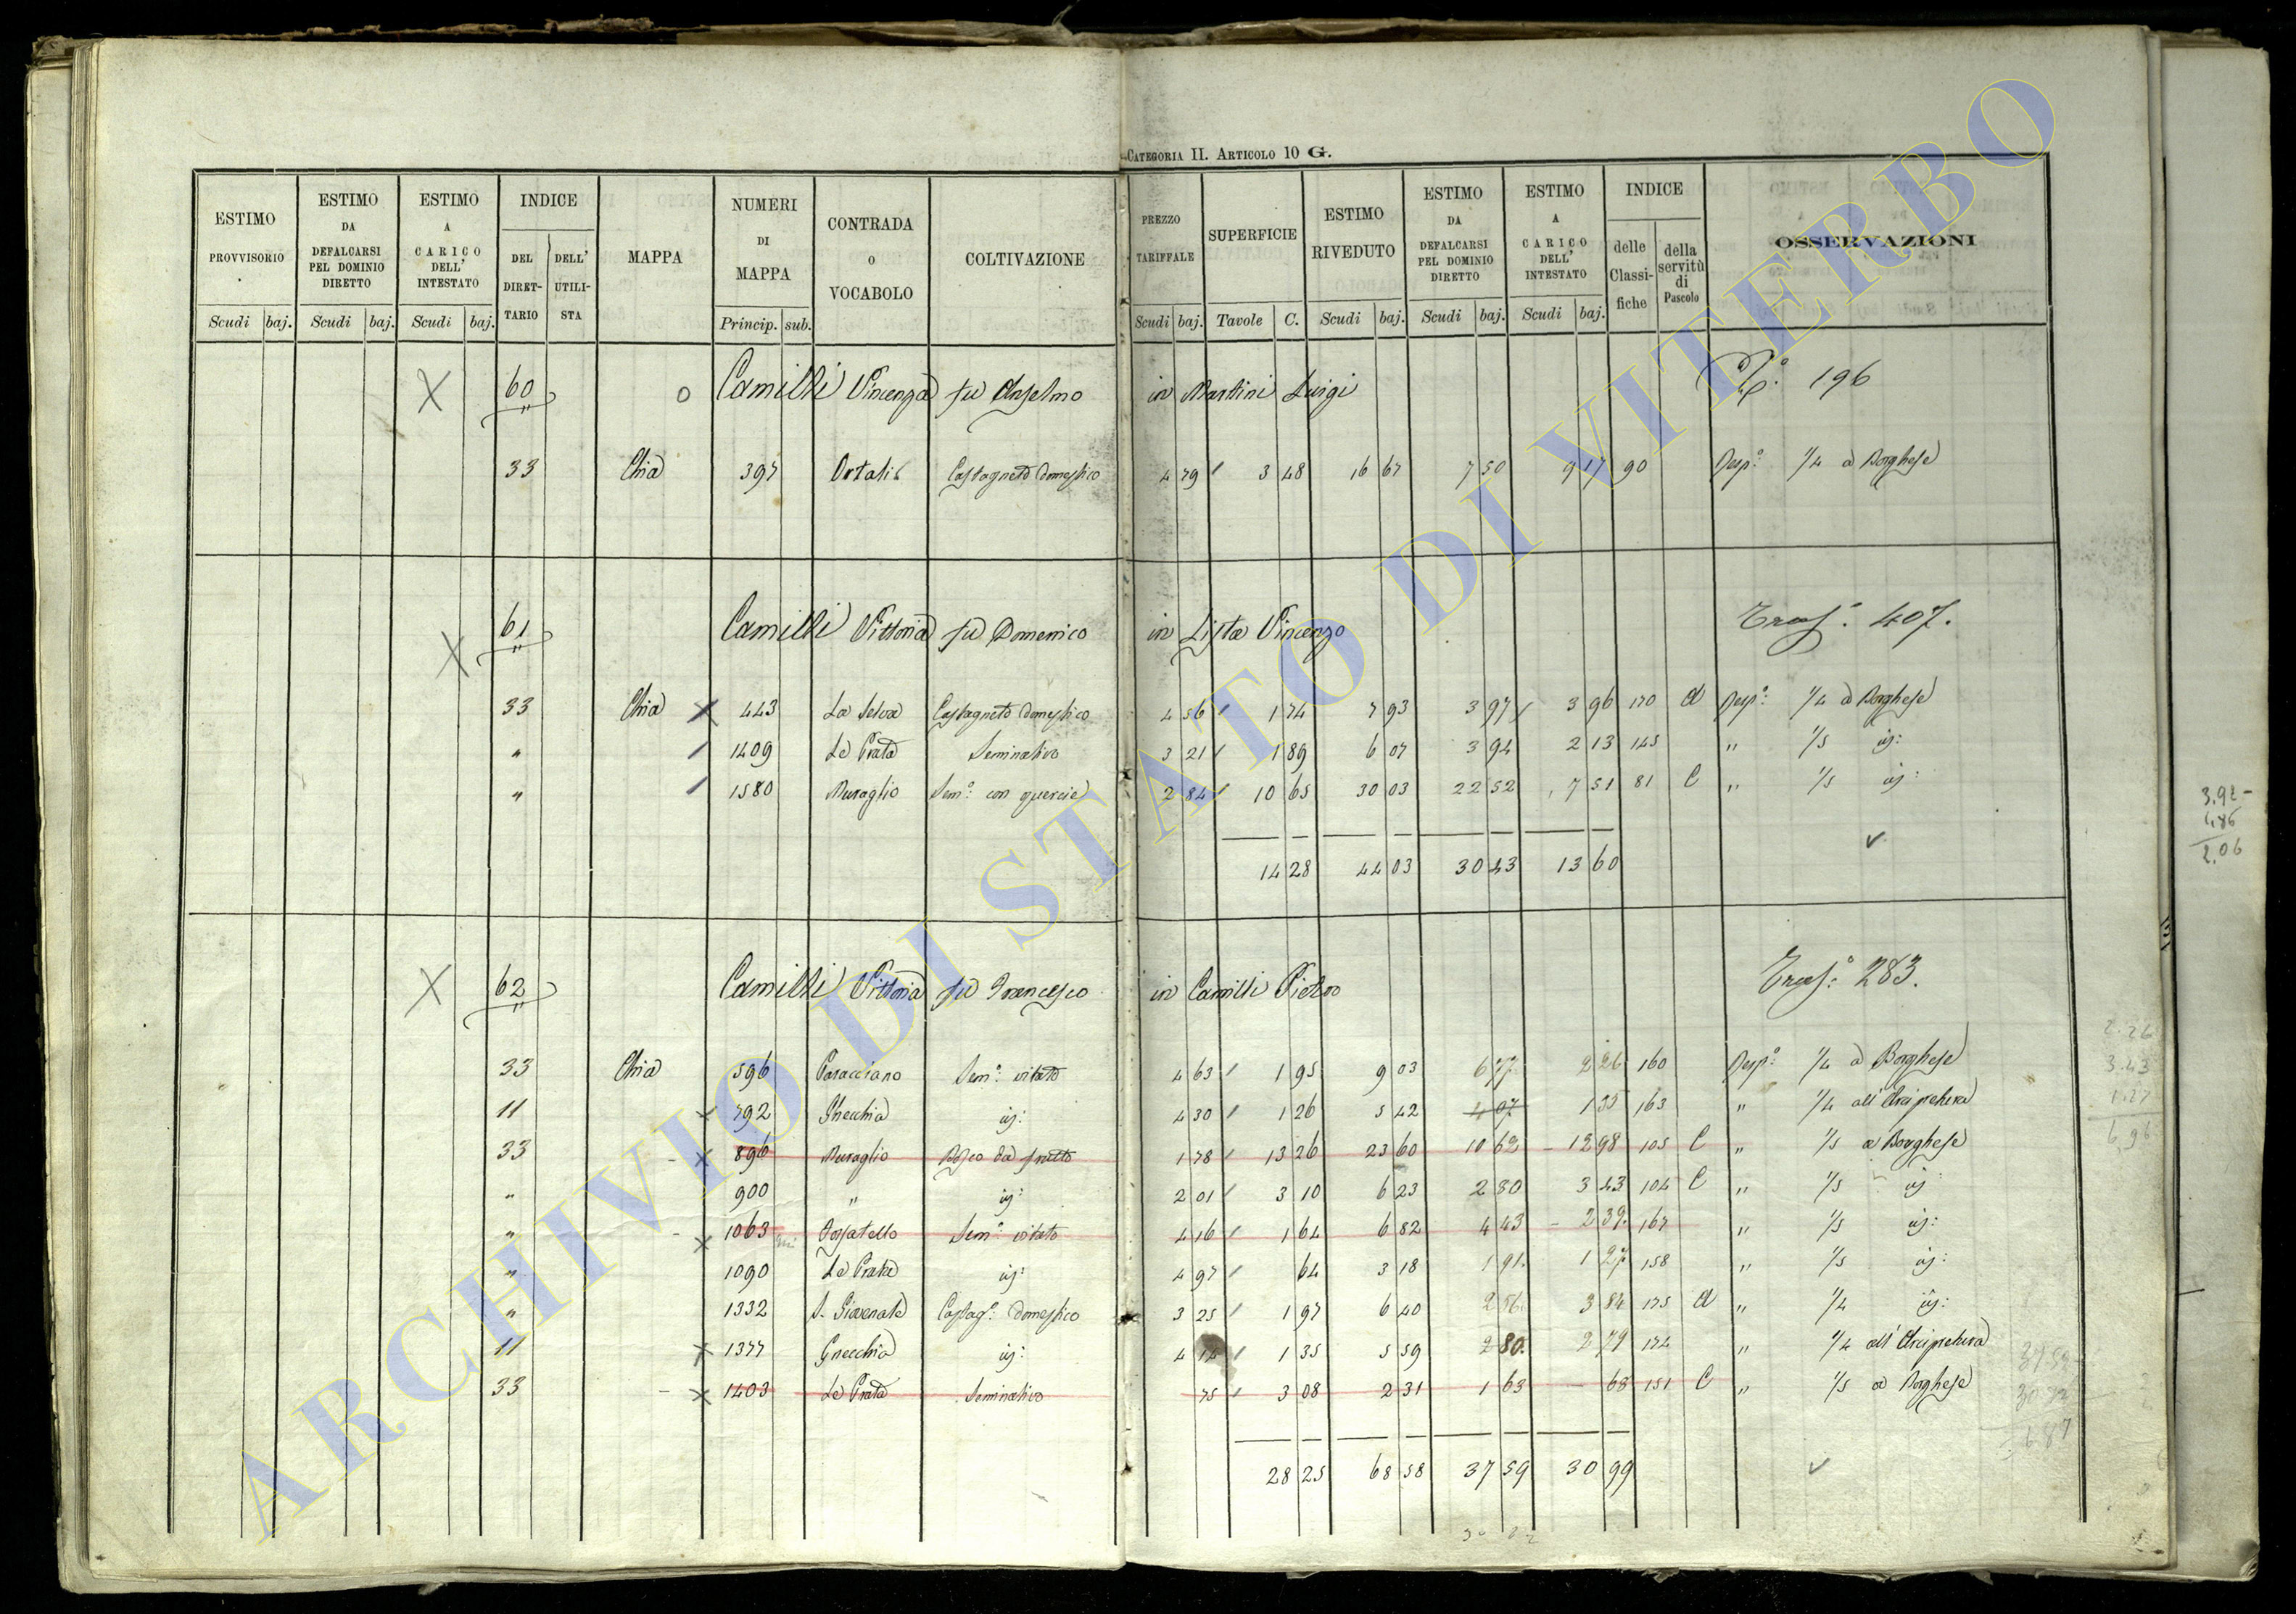 CATEGORIA II. ARTICOLO 10 G.
ESTIMO PROVVISORIO Scudi baj.
ESTIMO DA DEFALCARSI PEL DOMINIO DIRETTO Scudi baj.
ESTIMO A CARICO DELL' INTESTATO Scudi baj.
INDICE DEL DIRET-TARIO DELL' UTILI-STA
MAPPA
NUMERI DI MAPPA Princip. sub.
CONTRADA o VOCABOLO
COLTIVAZIONE
PREZZO TARIFFALE Scudi baj.
SUPERFICIE Tavole C.
ESTIMO RIVEDUTO Scudi baj.
ESTIMO DA DEFALCARSI PEL DOMINIO DIRETTO Scudi baj.
ESTIMO A CARICO DELL' INTESTATO Scudi baj.
INDICE delle Classi-fiche della servitù di Pascolo
OSSERVAZIONI
X 60 o Camilli Vincenza fu Anselmo in Martini Luigi 196
33 Chia 397 Ortali Castagneto domestico 4 79 3 48 16 67 7 50 9 17 90 Resp.º 1/4 a Borghese
X 61 Camilli Vittoria fu Domenico in Lista Vincenzo Trasº: 407.
33 Chia X 443 La Selva Castagneto domestico 4 56 1 74 7 93 3 97 3 96 170 A Resp.º 1/4 a Borghese
" 1409 Le Prata Seminativo 3 21 1 89 6 07 3 94 2 13 145 " 1/5 id:
" 1580 Muraglio Sem.º con quercie 2 84 10 65 30 03 22 52 7 51 81 C " 1/5 id:
14 28 44 03 30 43 13 60
3.92 -
1.86
2.06
X 62 Camilli Vittoria fu Francesco in Camilli Pietro Trasº: 283.
33 Chia 596 Paracciano Sem.º vitato 4 63 1 95 9 03 6 77 2 26 160 Resp.º 1/4 a Borghese
11 x 792 Ghecchia id: 4 30 1 26 5 42 4 07 1 35 163 " 1/4 all'Arcipretura
33 x 896 Muraglio Bosco da frutto 1 78 13 26 23 60 10 62 12 98 105 C " 1/5 a Borghese
" 900 " id: 2 01 3 10 6 23 2 80 3 43 104 C " 1/5 id:
" x 1063 Fossatello Sem.º vitato 4 16 1 64 6 82 4 43 2 39 167 " 1/5 id:
" 1090 Le Prata id: 4 97 64 3 18 1 91 1 27 158 " 1/5 id:
" 1332 S. Giovenale Castag.º domestico 3 25 1 97 6 40 2 56 3 84 175 A " 1/4 id:
11 x 1377 Gnecchia id: 4 14 1 35 5 59 2 80 2 79 174 " 1/4 all'Arcipretura
33 x 1403 Le Prata Seminativo 75 3 08 2 31 1 63 68 151 C " 1/5 a Borghese
28 25 68 58 37 59 30 99
2.26
3.43
1.27
6.96
ARCHIVIO DI STATO DI VITERBO